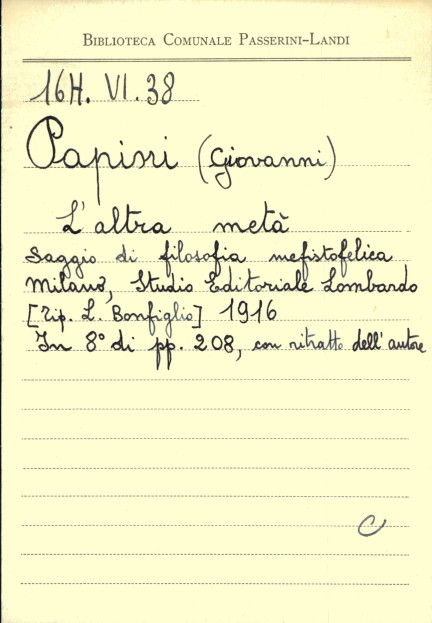 BIBLIOTECA COMUNALE PASSERINI-LANDI
16H. VI. 38
Papini (Giovanni)
L'altra metà
Saggio di filosofia mefistofelica
Milano, Studio Editoriale Lombardo
[Tip. L. Bonfiglio] 1916
In 8° di pp. 208, con ritratto dell'autore
C